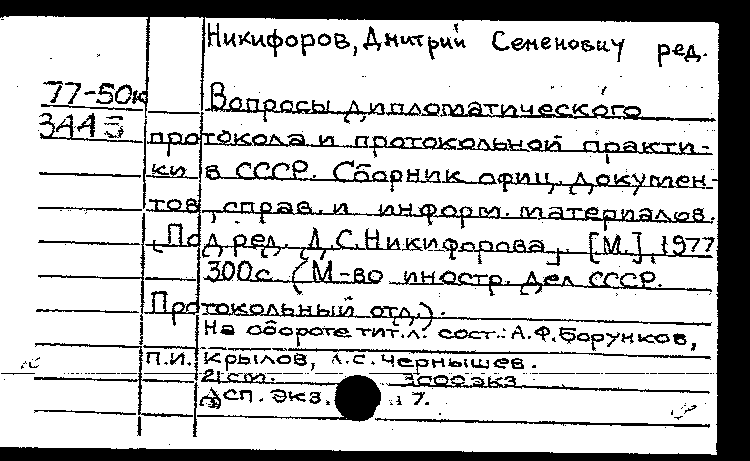 Никифоров, Дмитрий Семенович ред.
77-50к
Вопросы дипломатического
3445
протокола и протокольной практи-
ки в СССР. Сборник офиц. докумен-
тов, справ. и информ. материалов.
[Под ред. Д.С.Никифорова]. [М.], 1977
300с. (М-во иностр. дел СССР.
Протокольный отд.).
На обороте тит.л.: сост.: А.Ф.Борунков,
П.И. Крылов, Л.С.Чернышев.
21 см. 3000 экз
Дсп. Экз. 7.